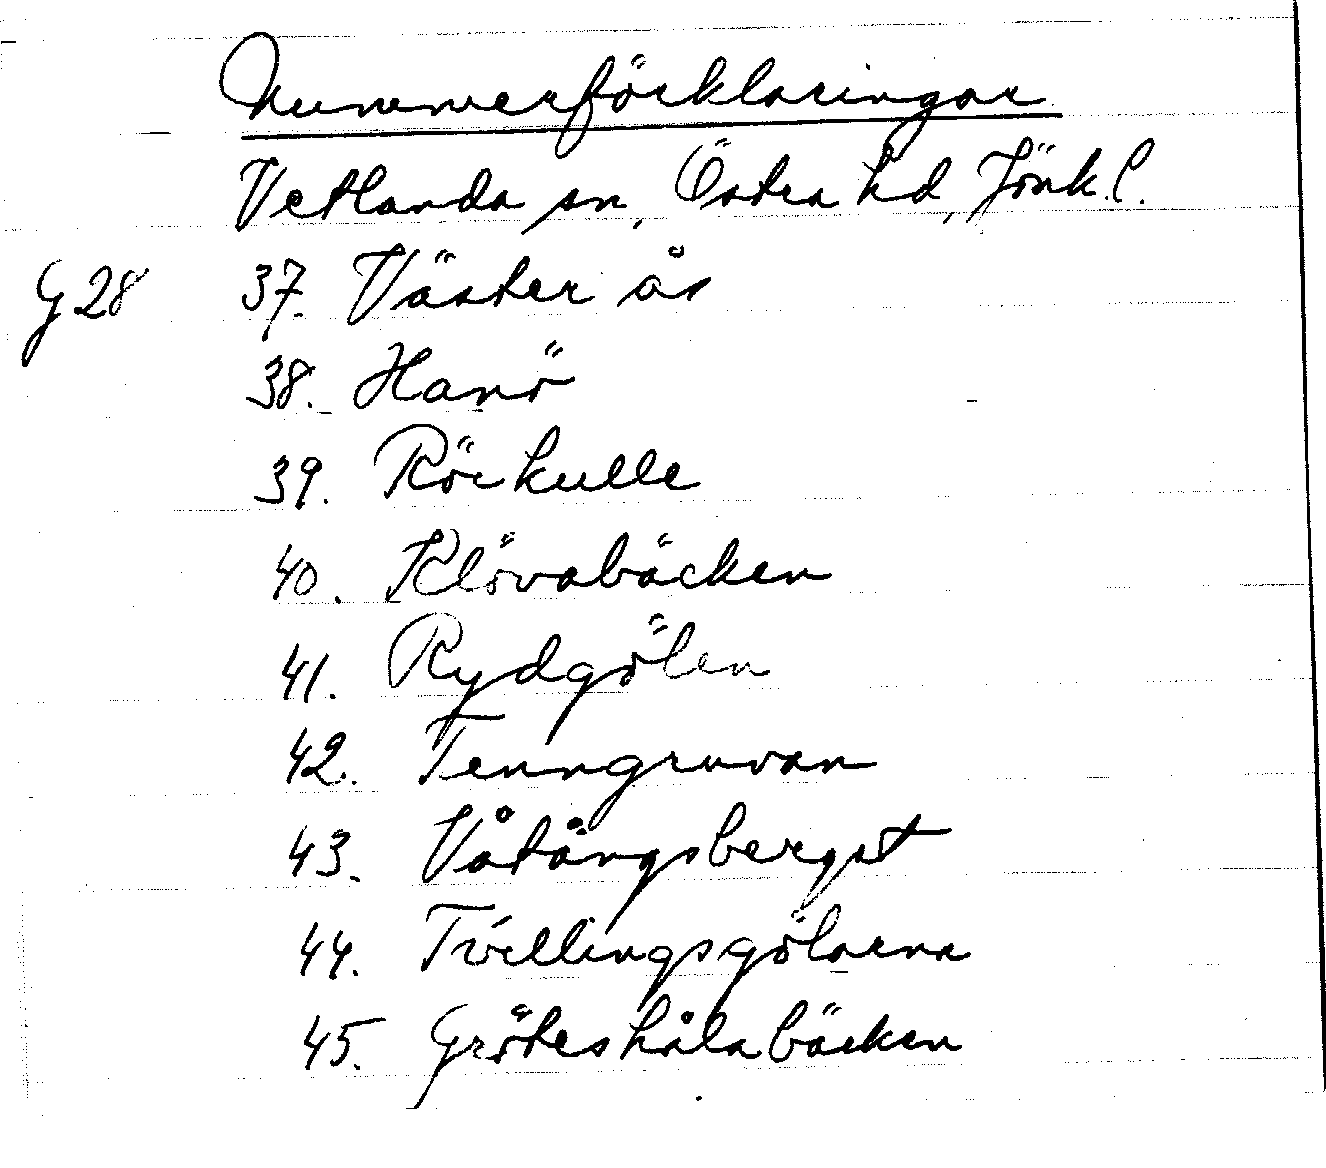 Nummerförklaringar
Vetlanda sn, Östra hd, Jönk. l.
G 28 37. Väster ås
38. Hanö
39. Rörkulle
40. Klövabäcken
41. Rydgölen
42. Tenngruvan
43. Våtängsberget
44. Tvillingsgölarna
45. Gröteshålabäcken